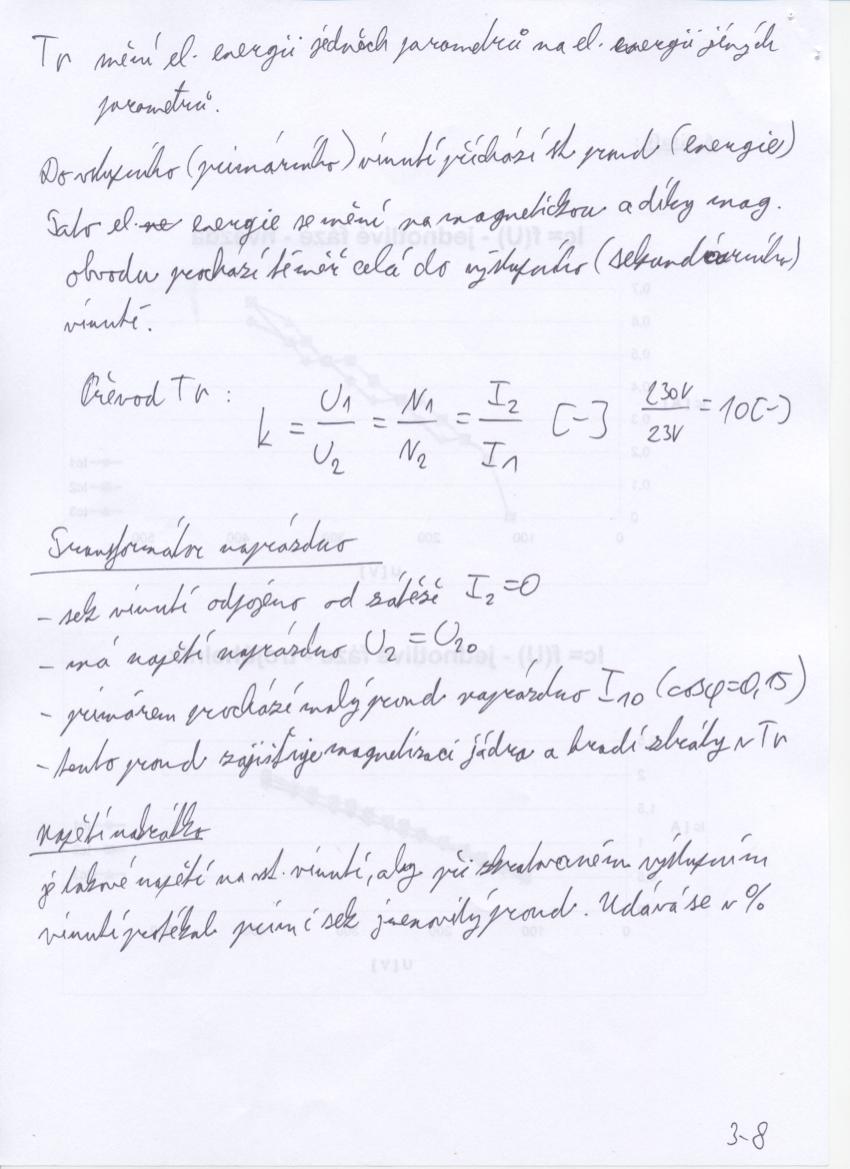 Tr mění el. energii jedněch parametrů na el. energii jiných
parametrů.
Do vstupního (primárního) vinutí přichází stř proud (energie)
Tato el. energie se mění na magnetickou a díky mag.
obvodu prochází téměř celá do výstupního (sekundárního)
vinutí.
Převod Tr : k = U1/U2 = N1/N2 = I2/I1 [-] 230V/23V = 10 [-]
Transformátor naprázdno
- sek vinutí odpojeno od zátěže I2 = 0
- má napětí naprázdno U2 = U20
- primárem prochází malý proud naprázdno I10 (cosφ=0,15)
- tento proud zajišťuje magnetizaci jádra a hradí ztráty v Tr
Napětí nakrátko
je takové napětí na vst. vinutí, aby při zkratovaném výstupním
vinutí protékal prim i sek jmenovitý proud. Udává se v %
3-8